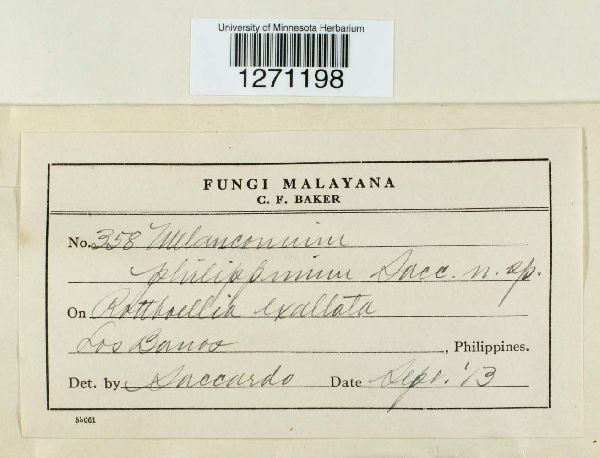 University of Minnesota Herbarium
1271198
FUNGI MALAYANA
C. F. BAKER
No. 358 Melanconium
philippinum Sacc. n. sp.
On Rottboellia exaltata
Los Banos, Philippines.
Det. by Saccardo Date Sept. '13
56061